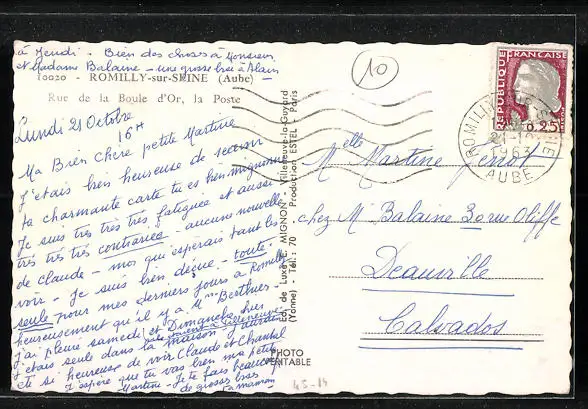 à Jeudi - Bien des choses à Monsieur
et Madame Balaine - une grosse bise à Alain
10020 - ROMILLY-sur-SEINE (Aube)
Rue de la Boule d'Or, la Poste
Lundi 21 Octobre
16 H
Ma Bien chère petite Martine
J'étais bien heureuse de recevoir
ta charmante carte tu es bien mignonne
Je suis très très très fatiguée et aussi
très très très contrariée - aucune nouvelle
de Claude - moi qui espérais tant les
voir - Je suis bien déçue - toute
seule pour mes derniers jours à Romilly
heureusement qu'il y a Mme Berthier -
j'ai pleuré samedi et Dimanche hier
j'étais seule dans la maison j'aurais
été si heureuse de voir Claude et Chantal
J'espère que tu vas bien ma petite
Martine - Je te fais beaucoup
de grosses bises
ta maman
Ed. de Luxe E. MIGNON Villeneuve-la-Guyard
(Yonne) - Tél. : 70 Production LESTEL - Paris
PHOTO
VERITABLE
45-14
10
REPUBLIQUE FRANCAISE
0,25
ROMILLY-S-SEINE
1963
AUBE
Melle Martine
chez M. Balaine 30 rue Oliffe
Deauville
Calvados